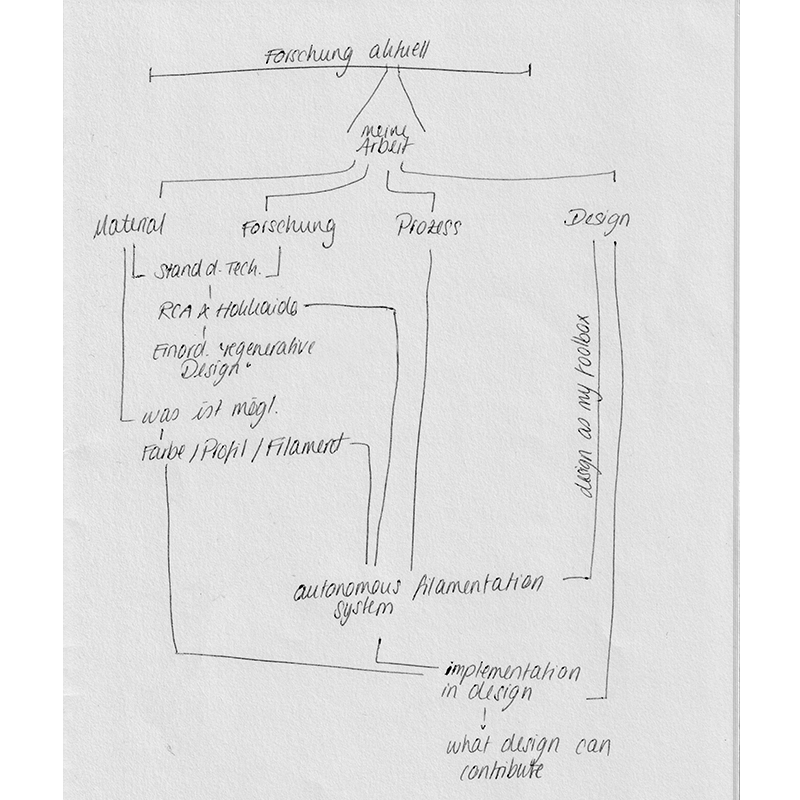 Forschung aktuell
meine
Arbeit
Material Forschung Prozess Design
Stand d. Tech.
RCA x Hokkaido
Einord. "regenerative
Design"
was ist mögl.
Farbe / Profil / Filament
design as my toolbox
autonomous filamentation
system
implementation
in design
what design can
contribute